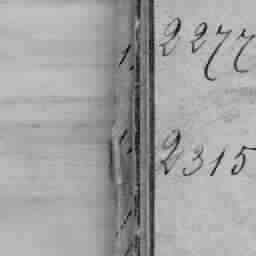 1. 2277
1. 2315